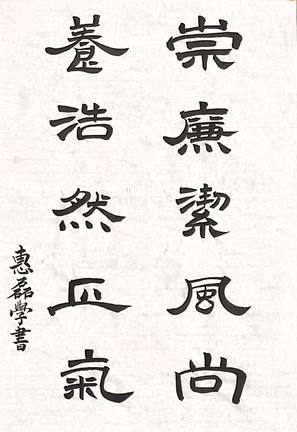 崇廉潔風尚
養浩然正氣
惠磊學書